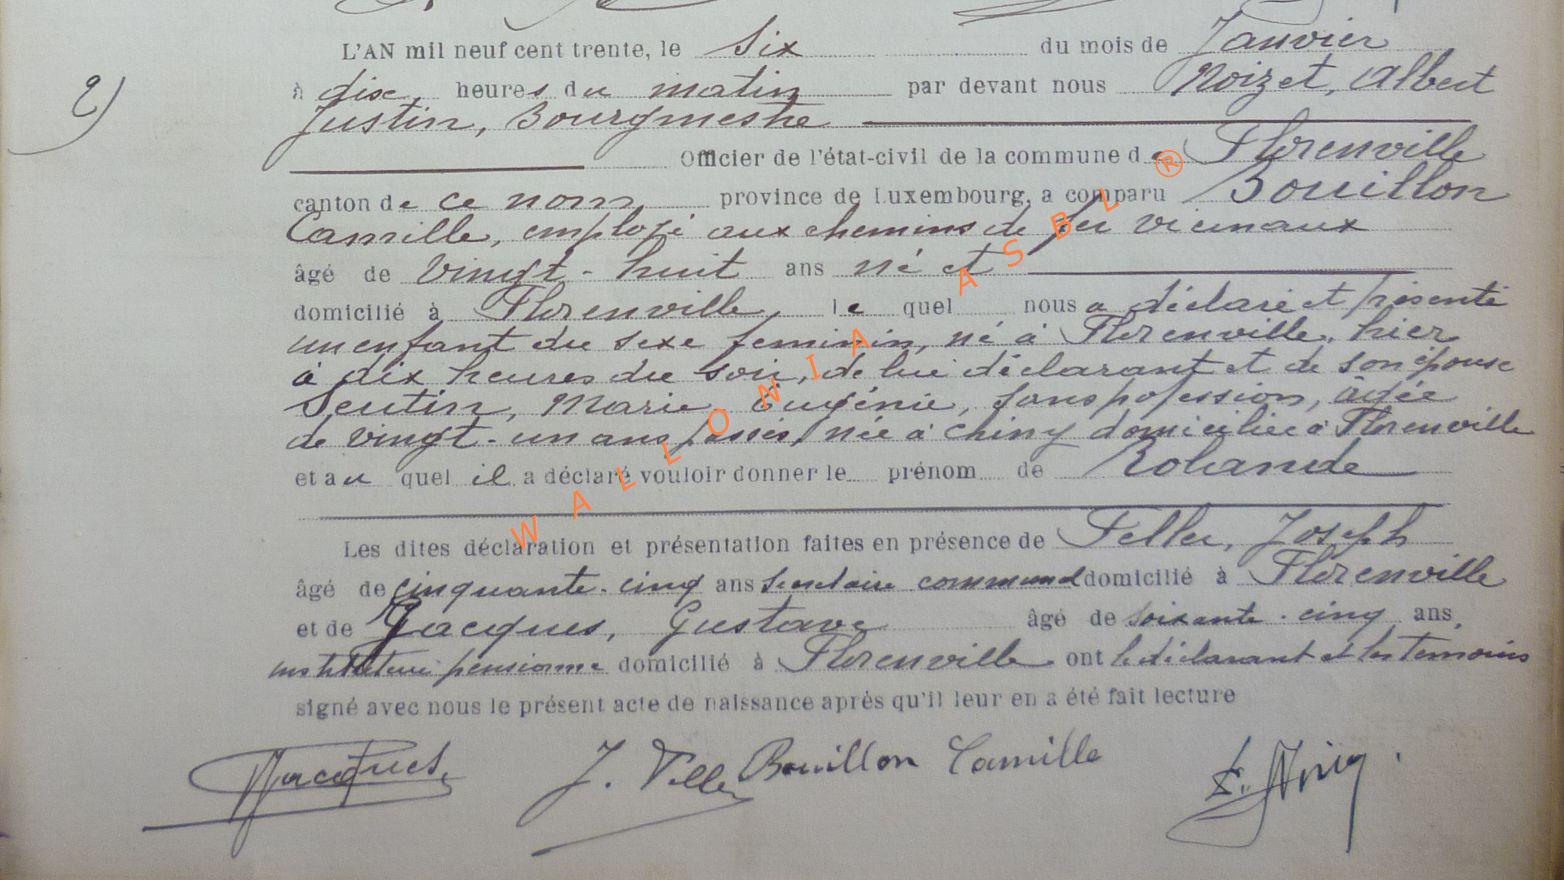 L'AN mil neuf cent trente, le six du mois de Janvier
2) à dix heures du matin par devant nous Noizet, Albert
Justin, Bourgmestre
Officier de l'état-civil de la commune de Florenville
canton de ce nom, province de Luxembourg, a comparu Bouillon
Camille, employé aux chemins de fer vicinaux
âgé de vingt-huit ans né et
domicilié à Florenville, lequel nous a déclaré et présenté
un enfant du sexe feminin, né à Florenville, hier
à dix heures du soir, de lui déclarant et de son épouse
Seutin, Marie Eugénie, sans profession, âgée
de vingt-un ans passés, née à Chiny domiciliée à Florenville
et auquel il a déclaré vouloir donner le prénom de Rolande
Les dites déclaration et présentation faites en présence de Feller, Joseph
âgé de cinquante-cinq ans secrétaire communal domicilié à Florenville
et de Jacques, Gustave âgé de soixante-cinq ans,
instituteur pensionné domicilié à Florenville ont le déclarant et les témoins
signé avec nous le présent acte de naissance après qu'il leur en a été fait lecture
Jacques J. Feller Bouillon Camille
WALLONIA ASBL ®